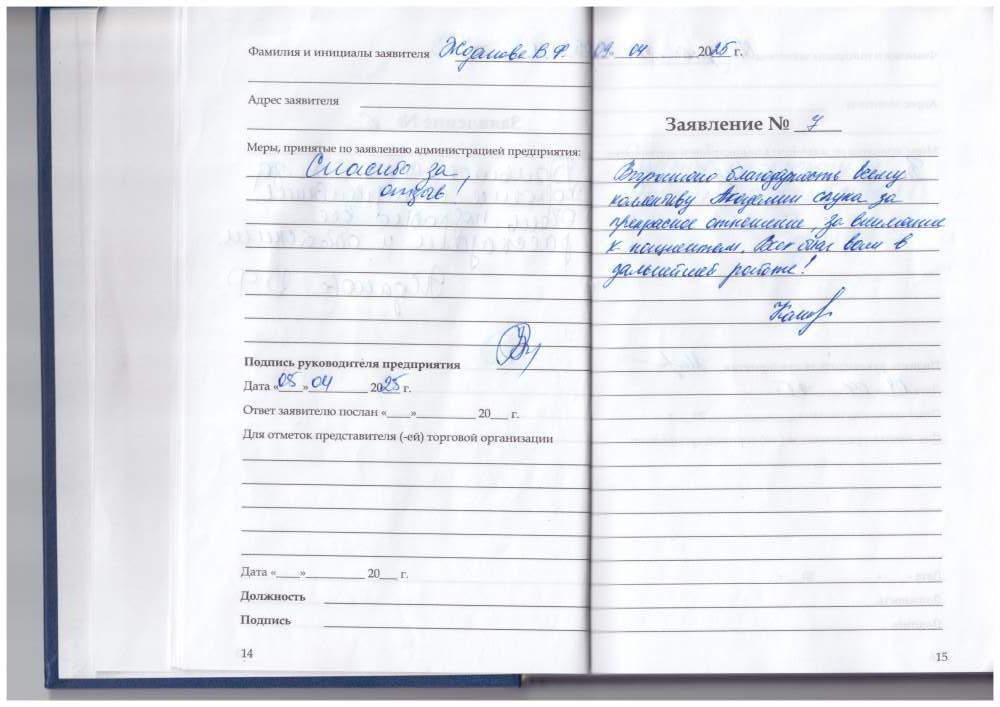 Фамилия и инициалы заявителя Жданова В.Ф.
Адрес заявителя
Меры, принятые по заявлению администрацией предприятия:
Спасибо за
отзыв!
Подпись руководителя предприятия
Дата «05» 04 2025 г.
Ответ заявителю послан «___»__________ 20___ г.
Для отметок представителя (-ей) торговой организации
Дата «____»__________ 20___ г.
Должность
Подпись
14
09. 04 2025 г.
Заявление № 7
Выражаю благодарность всему
коллективу Академии слуха за
прекрасное отношение, за внимание
к пациентам. Всех благ вам в
дальнейшей работе!
15